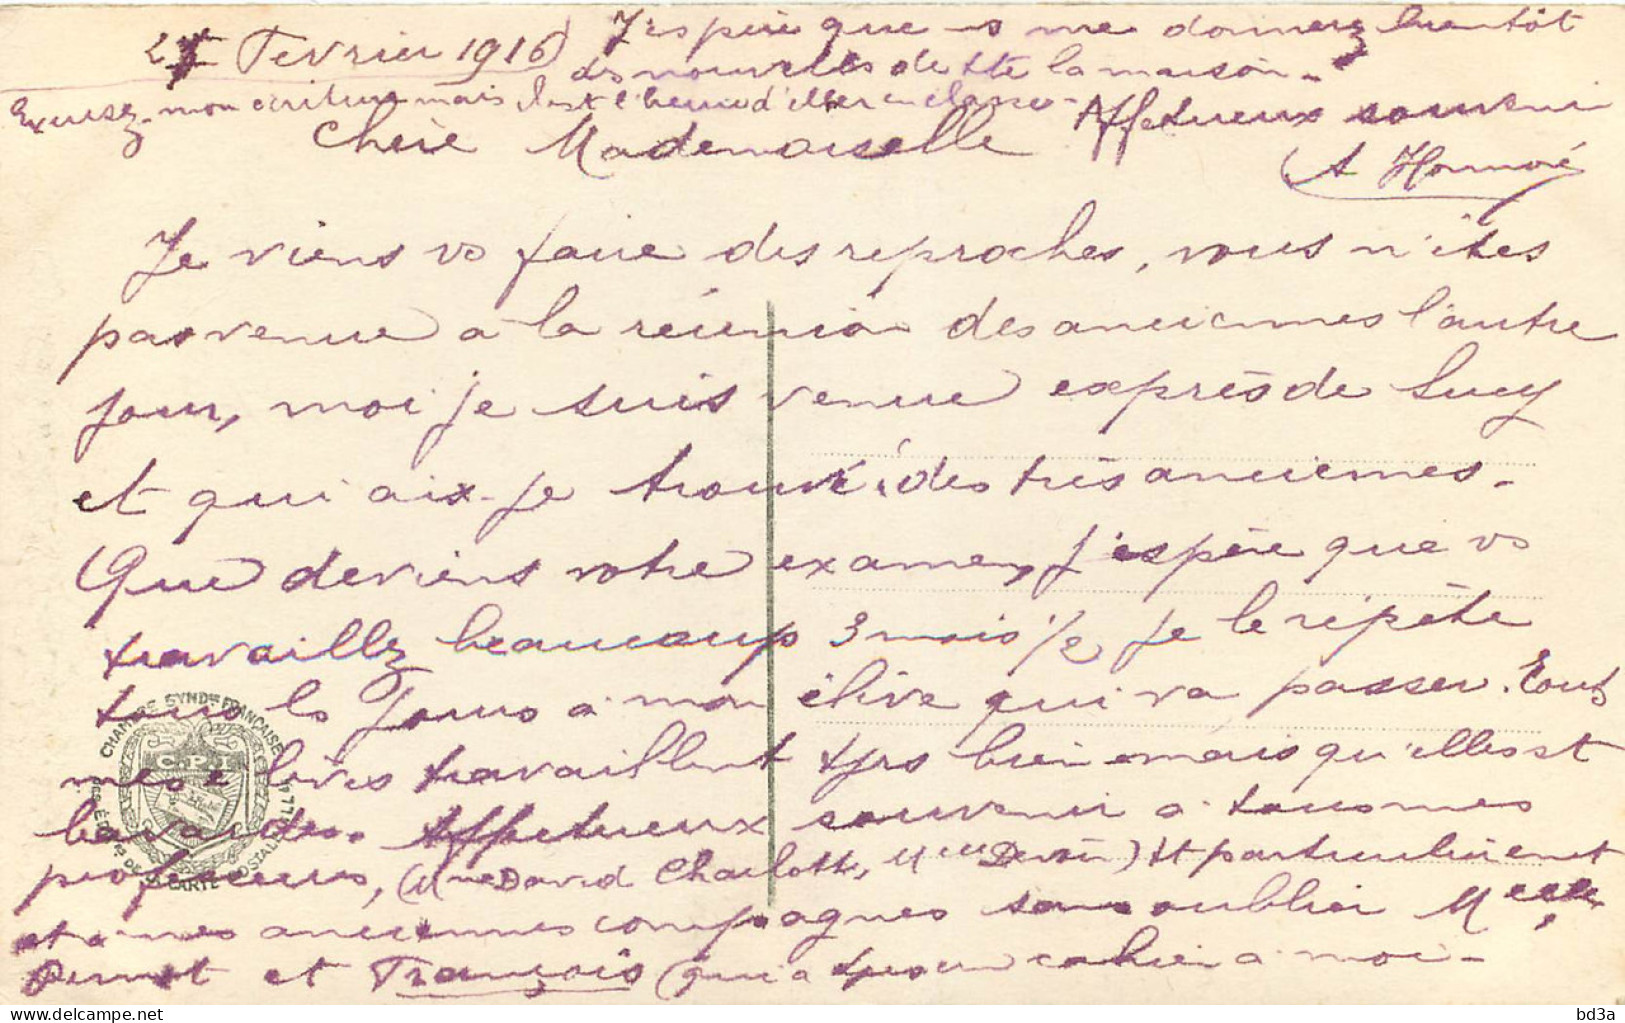 Février 1916
J'espère que vs me donnerez bientôt
des nouvelles de tte la maison.
Excusez mon écriture mais c'est l'heure d'aller en classe.
Affectueux souvenir
Chère Mademoiselle
Je viens vs faire des reproches, vous n'êtes
pas venue à la réunion des anciennes l'autre
jour, moi je suis venue exprès de Sucy
et qui aix-je trouvé, des très anciennes.
Que deviens votre examen, j'espère que vs
travaillez beaucoup 3 mois 1/2, je le répète
tous ls jours à mon élève qui va passer. Touts
mes élèves travaillent tjrs bien mais qu'elles st
bavardes. Affectueux souvenir à tous mes
professeurs, (Mme David Charlotte, ) et particulièremt
et à mes anciennes compagnes sans oublier Melle
Pernot et François (qui a tjrs un cahier à moi.
CHAMBRE SYNDle FRANÇAISE
C.P.I
DES ÉDITrs DE LA CARTE POSTALE ILLée
bd3a